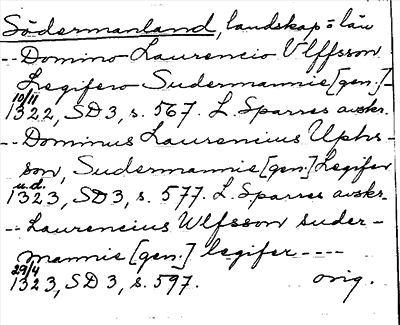 Södermanland, landskap o län
-- Domino Laurencio Ulffsson
Legifero Sudermannie [gen.] -
10/11
1322, SD 3, s. 567. L. Sparres avskr.
-- Dominus Laurencius Uphs-
son, Sudermannie [gen.] Legifer
u.d.
1323, SD 3, s. 577. L. Sparres avskr.
-- Laurencius Ulfsson suder-
mannie [gen.] legifer ----
29/4
1323, SD 3, s. 597. orig.